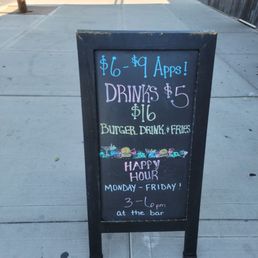 $6-$9 Apps!
DRINKS $5
$16
BURGER, DRINK & FRIES
HAPPY
HOUR
MONDAY - FRIDAY!
3-6pm
at the bar